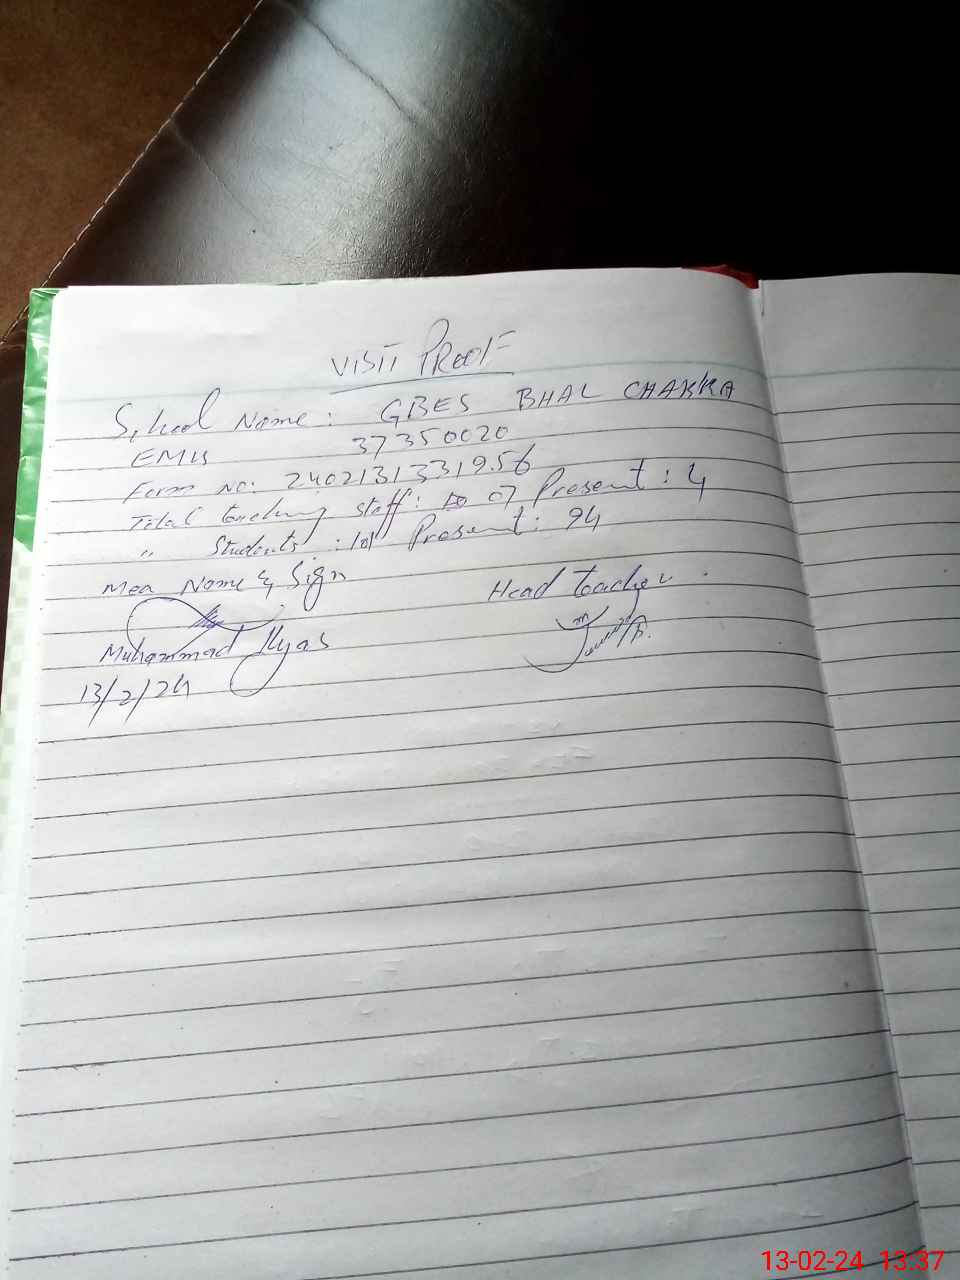 VISIT PROOF
School Name: GBES BHAL CHAKRA
EMIS 37350020
Form No: 24021313319.56
Total teaching staff: 07 Present: 4
" Students: 101 Present: 94
Mea Name & Sign
Head teacher
Muhammad Ilyas
13/2/24
13-02-24 13:37